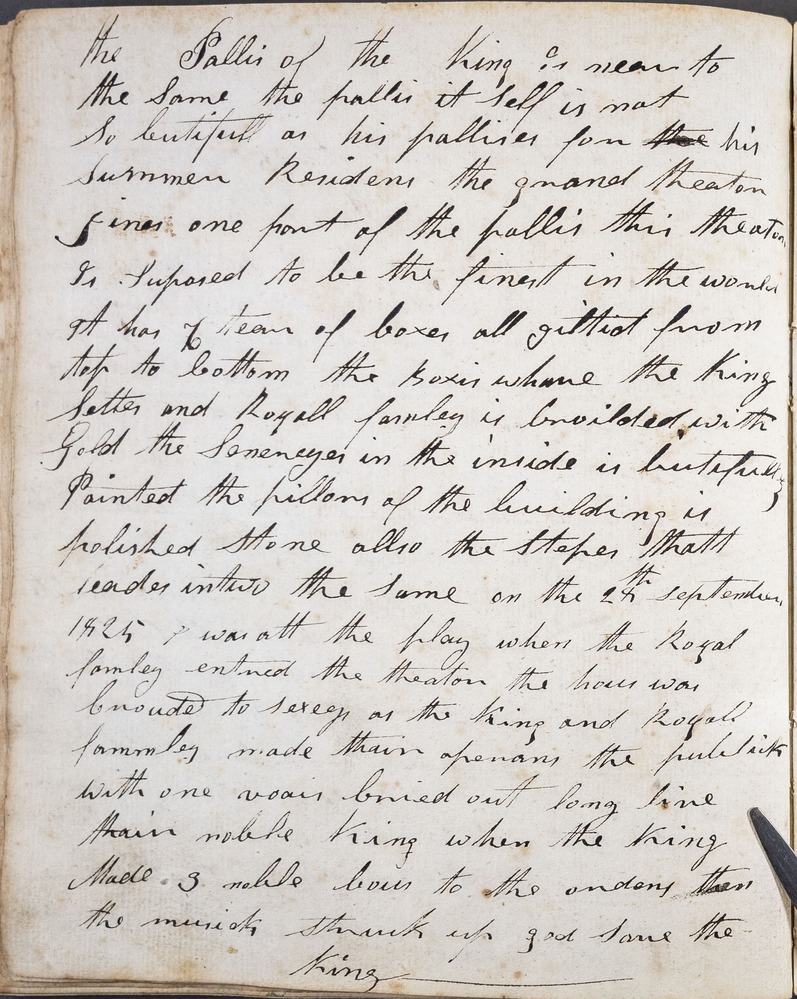 the Pallis of the King is near to
the same the pallis it self is not
so butifull as his pallises for the his
Summer Residens the grand theator
Jines one part of the pallis this theator
Is Suposed to be the finest in the world
It has 7 tear of boxes all gilted from
top to bottom the Boxis whare the King
settes and Royall famley is broilded with
Gold the Senereyes in the inside is butifully
Painted the pillors of the building is
polished stone allso the stepes thatt
leades intwo the same on the 28th september
1825 I was att the play when the Royal
famley entred the theator the hous was
Crouded to sexegs as the King and Royall
fammley made thair aperans the publick
with one voais Cried out long live
thair noble King when the King
Made 3 noble bows to the ordens then
the musick struck up god save the
King